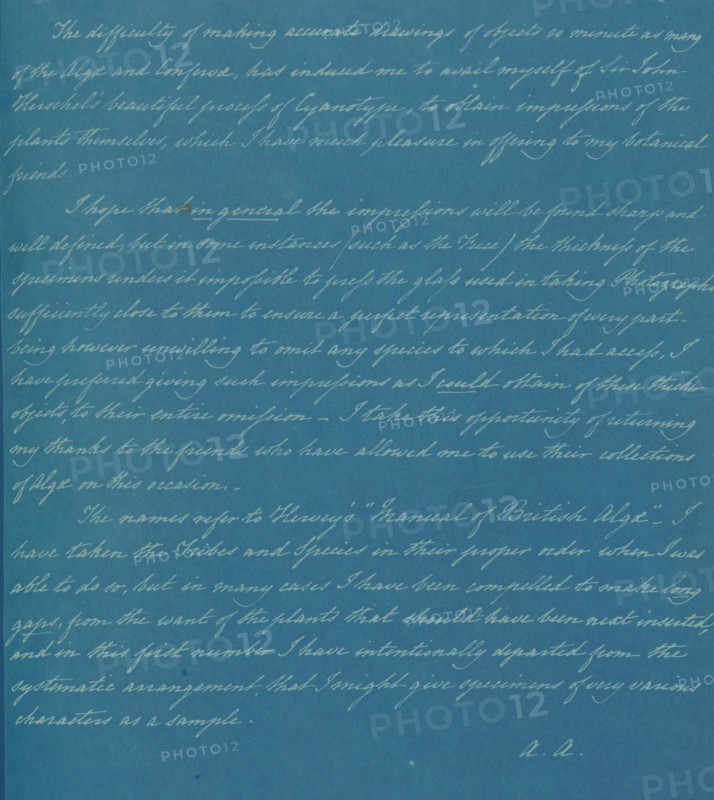 The difficulty of making accurate drawings of objects as minute as many
of the Algæ and Confervæ, has induced me to avail myself of Sir John
Herschel's beautiful process of Cyanotype, to obtain impressions of the
plants themselves, which I have much pleasure in offering to my botanical
friends.
I hope that in general the impressions will be found sharp and
well defined, but in some instances (such as the Fuci) the thickness of the
specimens renders it impossible to press the glass used in taking Photographs
sufficiently close to them to insure a perfect representation of every part.
being however unwilling to omit any species to which I had access, I
have prefered giving such impressions as I could obtain of these thicker
objects, to their entire omission – I take this opportunity of returning
my thanks to the friends who have allowed me to use their collections
of Algæ on this occasion. –
The names refer to Harvey's "Manual of British Algæ" – I
have taken the Tribes and Species in their proper order when I was
able to do so, but in many cases I have been compelled to make long
gaps, from the want of the plants that should have been next inserted,
and in this first number I have intentionally departed from the
systematic arrangement, that I might give specimens of very various
characters as a sample.
A. A.
PHOTO12